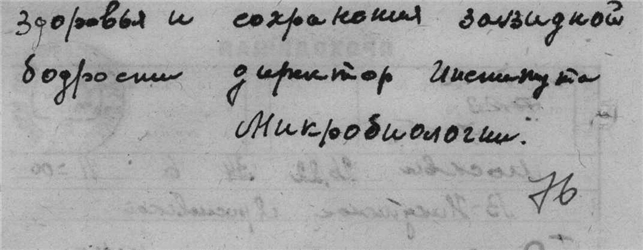 здоровья и сохранения завидной
бодрости директор Института
Микробиологии.
76